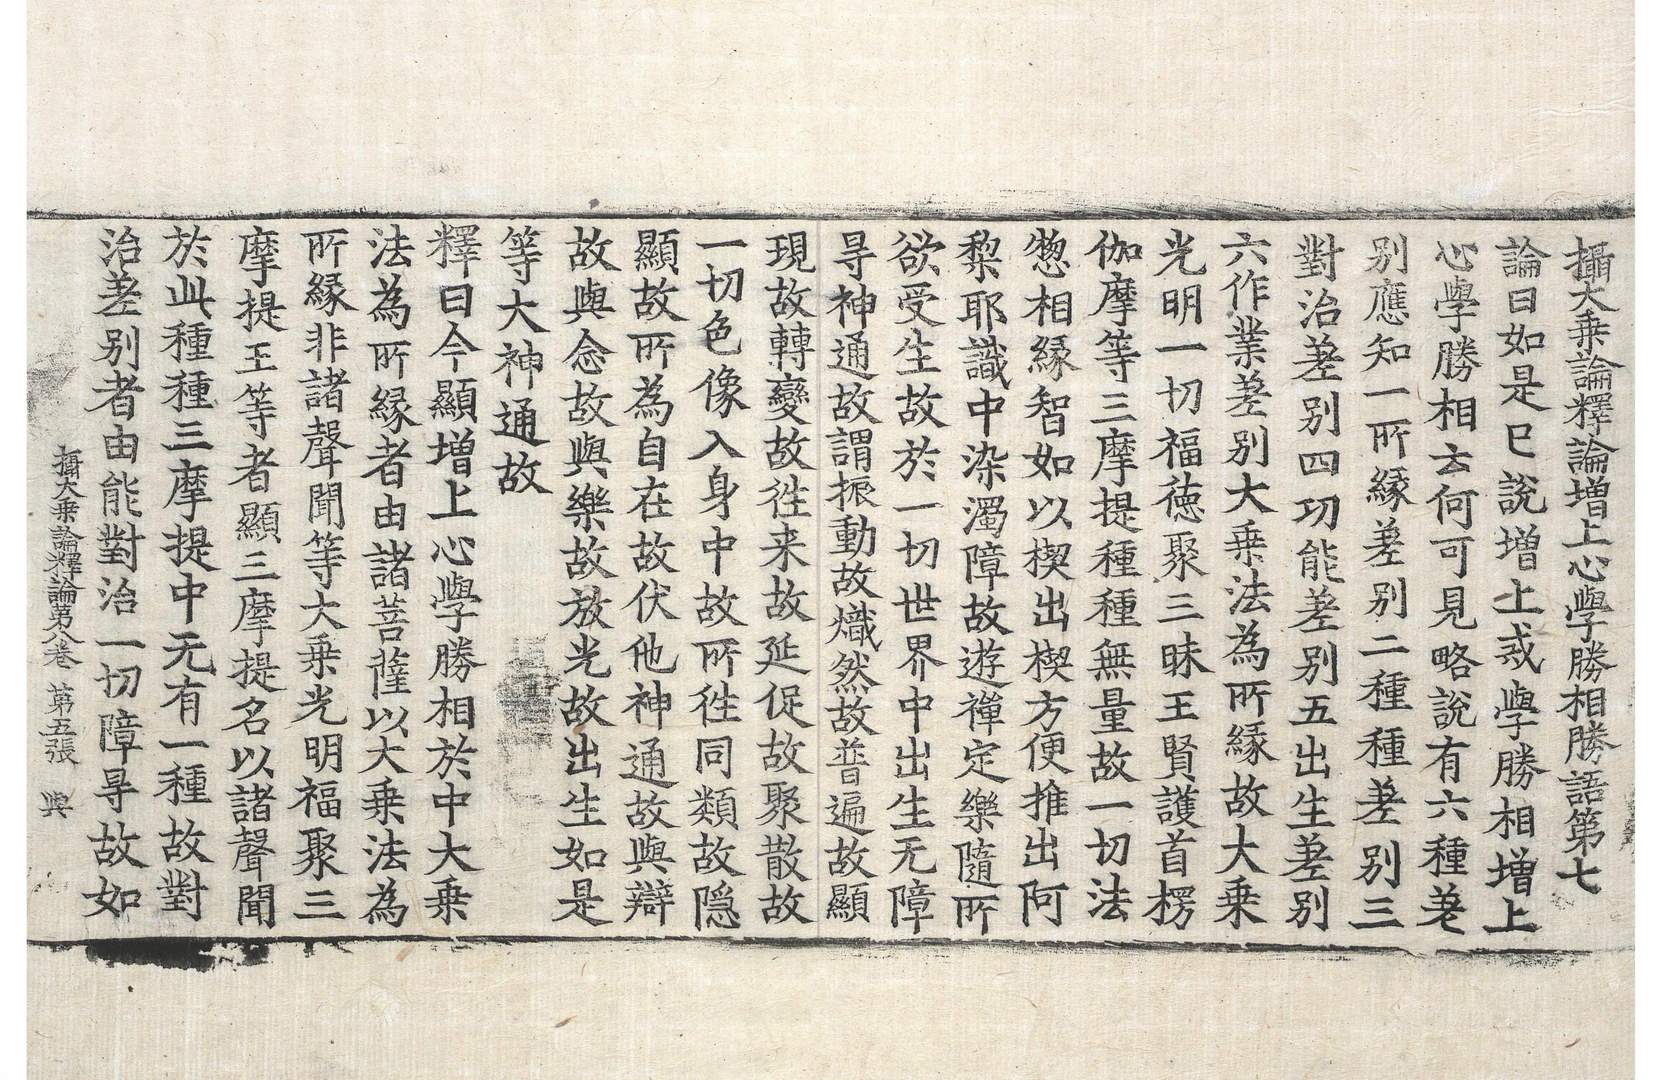 攝大乗論釋論増上心學勝相勝語第七
論曰如是已說増上戒學勝相増上
心學勝相云何可見略說有六種差
别應知一所縁差别二種種差别三
對治差别四功能差别五出生差别
六作業差别大乗法為所縁故大乗
光明一切福德聚三昧王賢護首楞
伽摩等三摩提種種無量故一切法
緫相縁智如以楔出楔方便推出阿
棃耶識中染濁障故遊禪定樂隨所
欲受生故於一切世界中出生无障
㝵神通故謂振動故熾然故普遍故顯
現故轉變故徃来故延促故聚散故
一切色像入身中故所徃同類故隐
顯故所為自在故伏他神通故與辯
故與念故與樂故放光故出生如是
等大神通故
釋曰今顯増上心學勝相於中大乗
法為所縁者由諸菩薩以大乗法為
所縁非諸聲聞等大乗光明福聚三
摩提王等者顯三摩提名以諸聲聞
於此種種三摩提中无有一種故對
治差别者由能對治一切障㝵故如
攝大乗論釋論第八卷 第五張 與